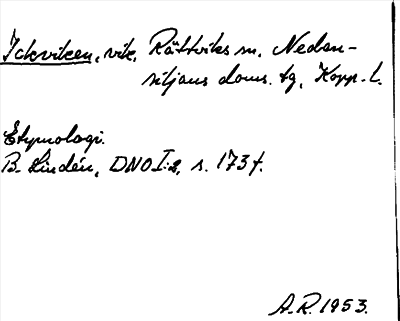 Ickviken, vik, Rättviks sn, Nedan-
siljans doms. tg, Kopp. l.
Etymologi.
B. Lindén, DNO I:2, s. 173 f.
A.R. 1953.